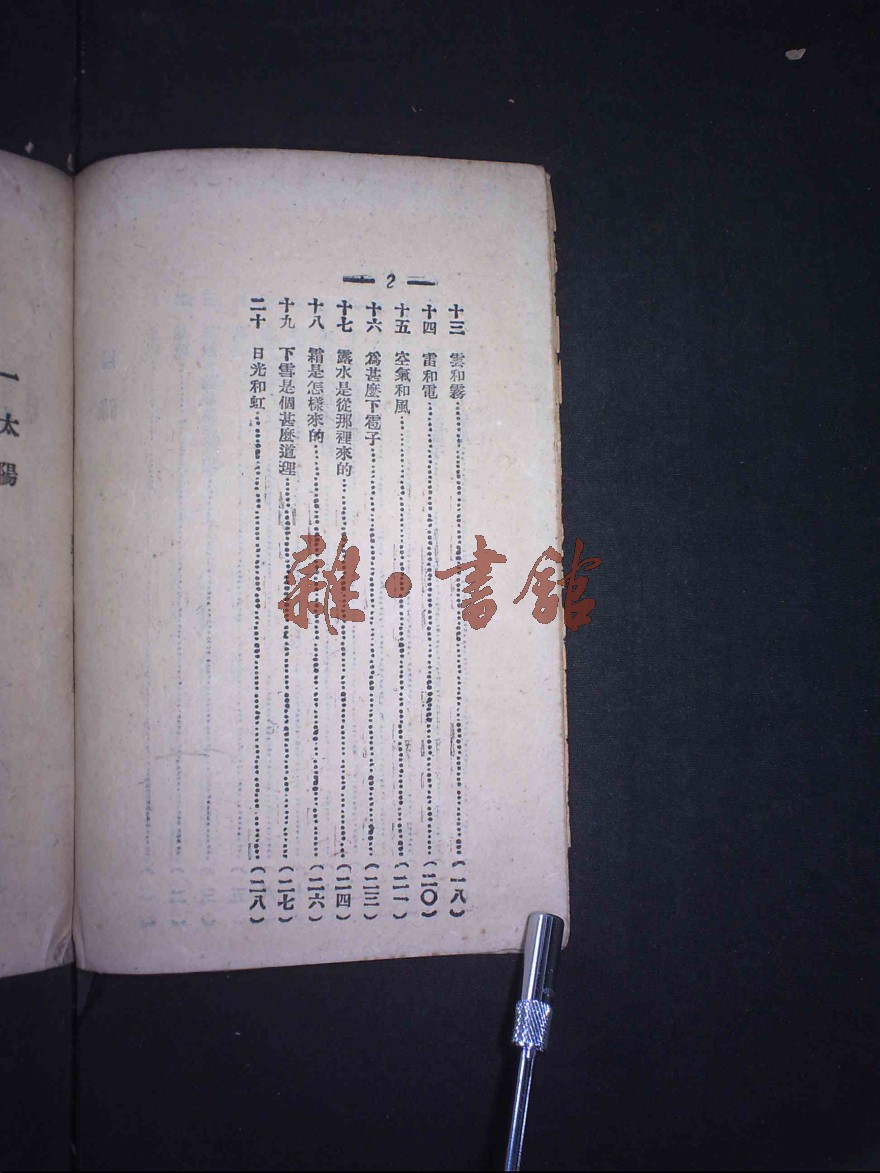 2
十三 雲和霧(一八)
十四 雷和電(二〇)
十五 空氣和風(二一)
十六 爲甚麼下雹子(二三)
十七 露水是從那裡來的(二四)
十八 霜是怎樣來的(二六)
十九 下雪是個甚麼道理(二七)
二十 日光和虹(二八)
一 太陽
雜·書館